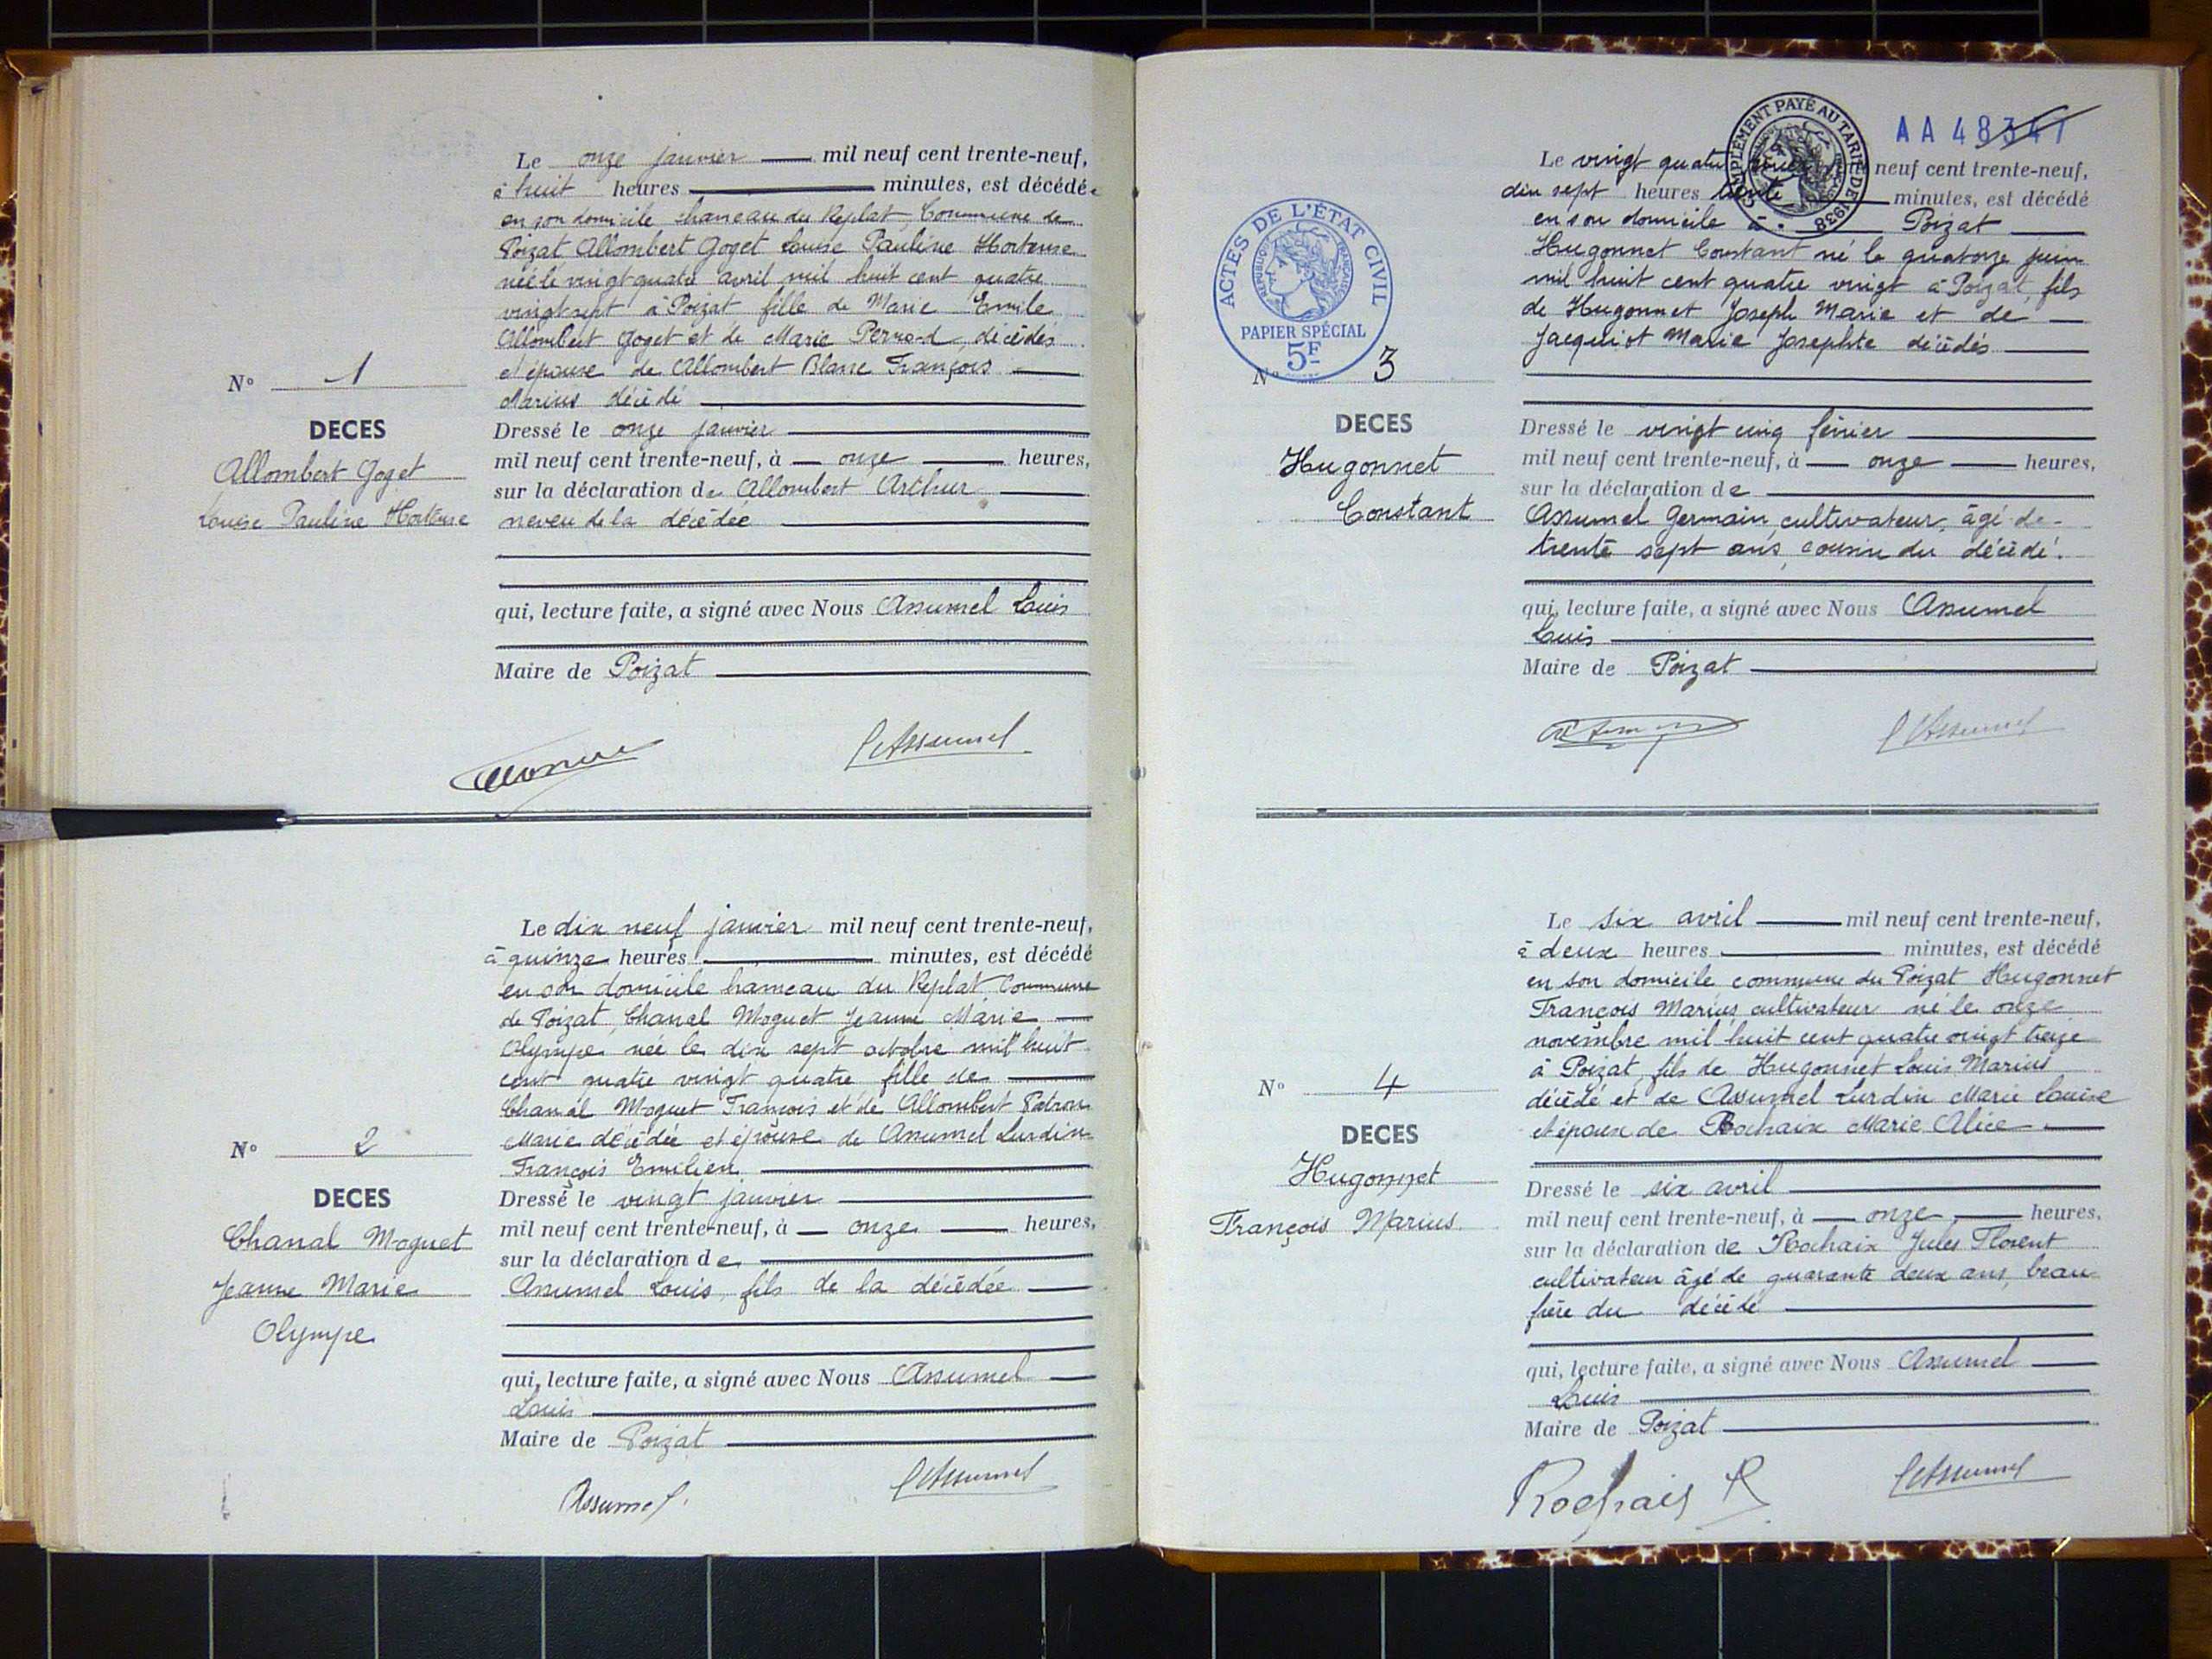 Le onze janvier mil neuf cent trente-neuf,
à huit heures minutes, est décédée
en son domicile hameau du Replat, Commune de
Poizat Allombert Goget Louise Pauline Hortense
née le vingt quatre avril mil huit cent quatre
vingt sept à Poizat fille de Marie Emile
Allombert Goget et de Marie Perrod, décédés
et épouse de Allombert Blanc François
Marius décédé
N° 1
DECES
Allombert Goget
Louise Pauline Hortense
Dressé le onze janvier
mil neuf cent trente-neuf, à onze heures,
sur la déclaration de Allombert Arthur
neveu de la décédée
qui, lecture faite, a signé avec Nous Assumel Louis
Maire de Poizat
L Assumel
Le dix neuf janvier mil neuf cent trente-neuf,
à quinze heures minutes, est décédé
en son domicile hameau du Replat Commune
de Poizat, Chanal Moguet Jeanne Marie
Olympe née le dix sept octobre mil huit
cent quatre vingt quatre fille de
Chanal Moguet François et de Allombert Patron
Marie décédée et épouse de Assumel Lurdin
François Emilien
N° 2
DECES
Chanal Moguet
Jeanne Marie
Olympe
Dressé le vingt janvier
mil neuf cent trente-neuf, à onze heures,
sur la déclaration de
Assumel Louis, fils de la décédée
qui, lecture faite, a signé avec Nous Assumel
Louis
Maire de Poizat
Assumel
L Assumel
SUPPLÉMENT PAYÉ AU TARIF DE 1938
AA 48347
Le vingt quatre neuf cent trente-neuf,
dix sept heures trente minutes, est décédé
en son domicile à Poizat
Hugonnet Constant né le quatorze juin
mil huit cent quatre vingt à Poizat, fils
de Hugonnet Joseph Marie et de
Jacquiot Marie Josephte décédés
ACTES DE L'ÉTAT CIVIL
RÉPUBLIQUE FRANÇAISE
PAPIER SPÉCIAL
5F
N° 3
DECES
Hugonnet
Constant
Dressé le vingt cinq février
mil neuf cent trente-neuf, à onze heures,
sur la déclaration de
Assumel Germain cultivateur, âgé de
trente sept ans, cousin du décédé.
qui, lecture faite, a signé avec Nous Assumel
Louis
Maire de Poizat
L Assumel
Le six avril mil neuf cent trente-neuf,
à deux heures minutes, est décédé
en son domicile commune du Poizat Hugonnet
François Marius cultivateur né le onze
novembre mil huit cent quatre vingt treize
à Poizat, fils de Hugonnet Louis Marius
décédé et de Assumel Lurdin Marie Louise
et époux de Rochaix Marie Alice
N° 4
DECES
Hugonnet
François Marius
Dressé le six avril
mil neuf cent trente-neuf, à onze heures,
sur la déclaration de Rochaix Jules Florent
cultivateur âgé de quarante deux ans, beau
frère du décédé
qui, lecture faite, a signé avec Nous Assumel
Louis
Maire de Poizat
Rochaix
L Assumel